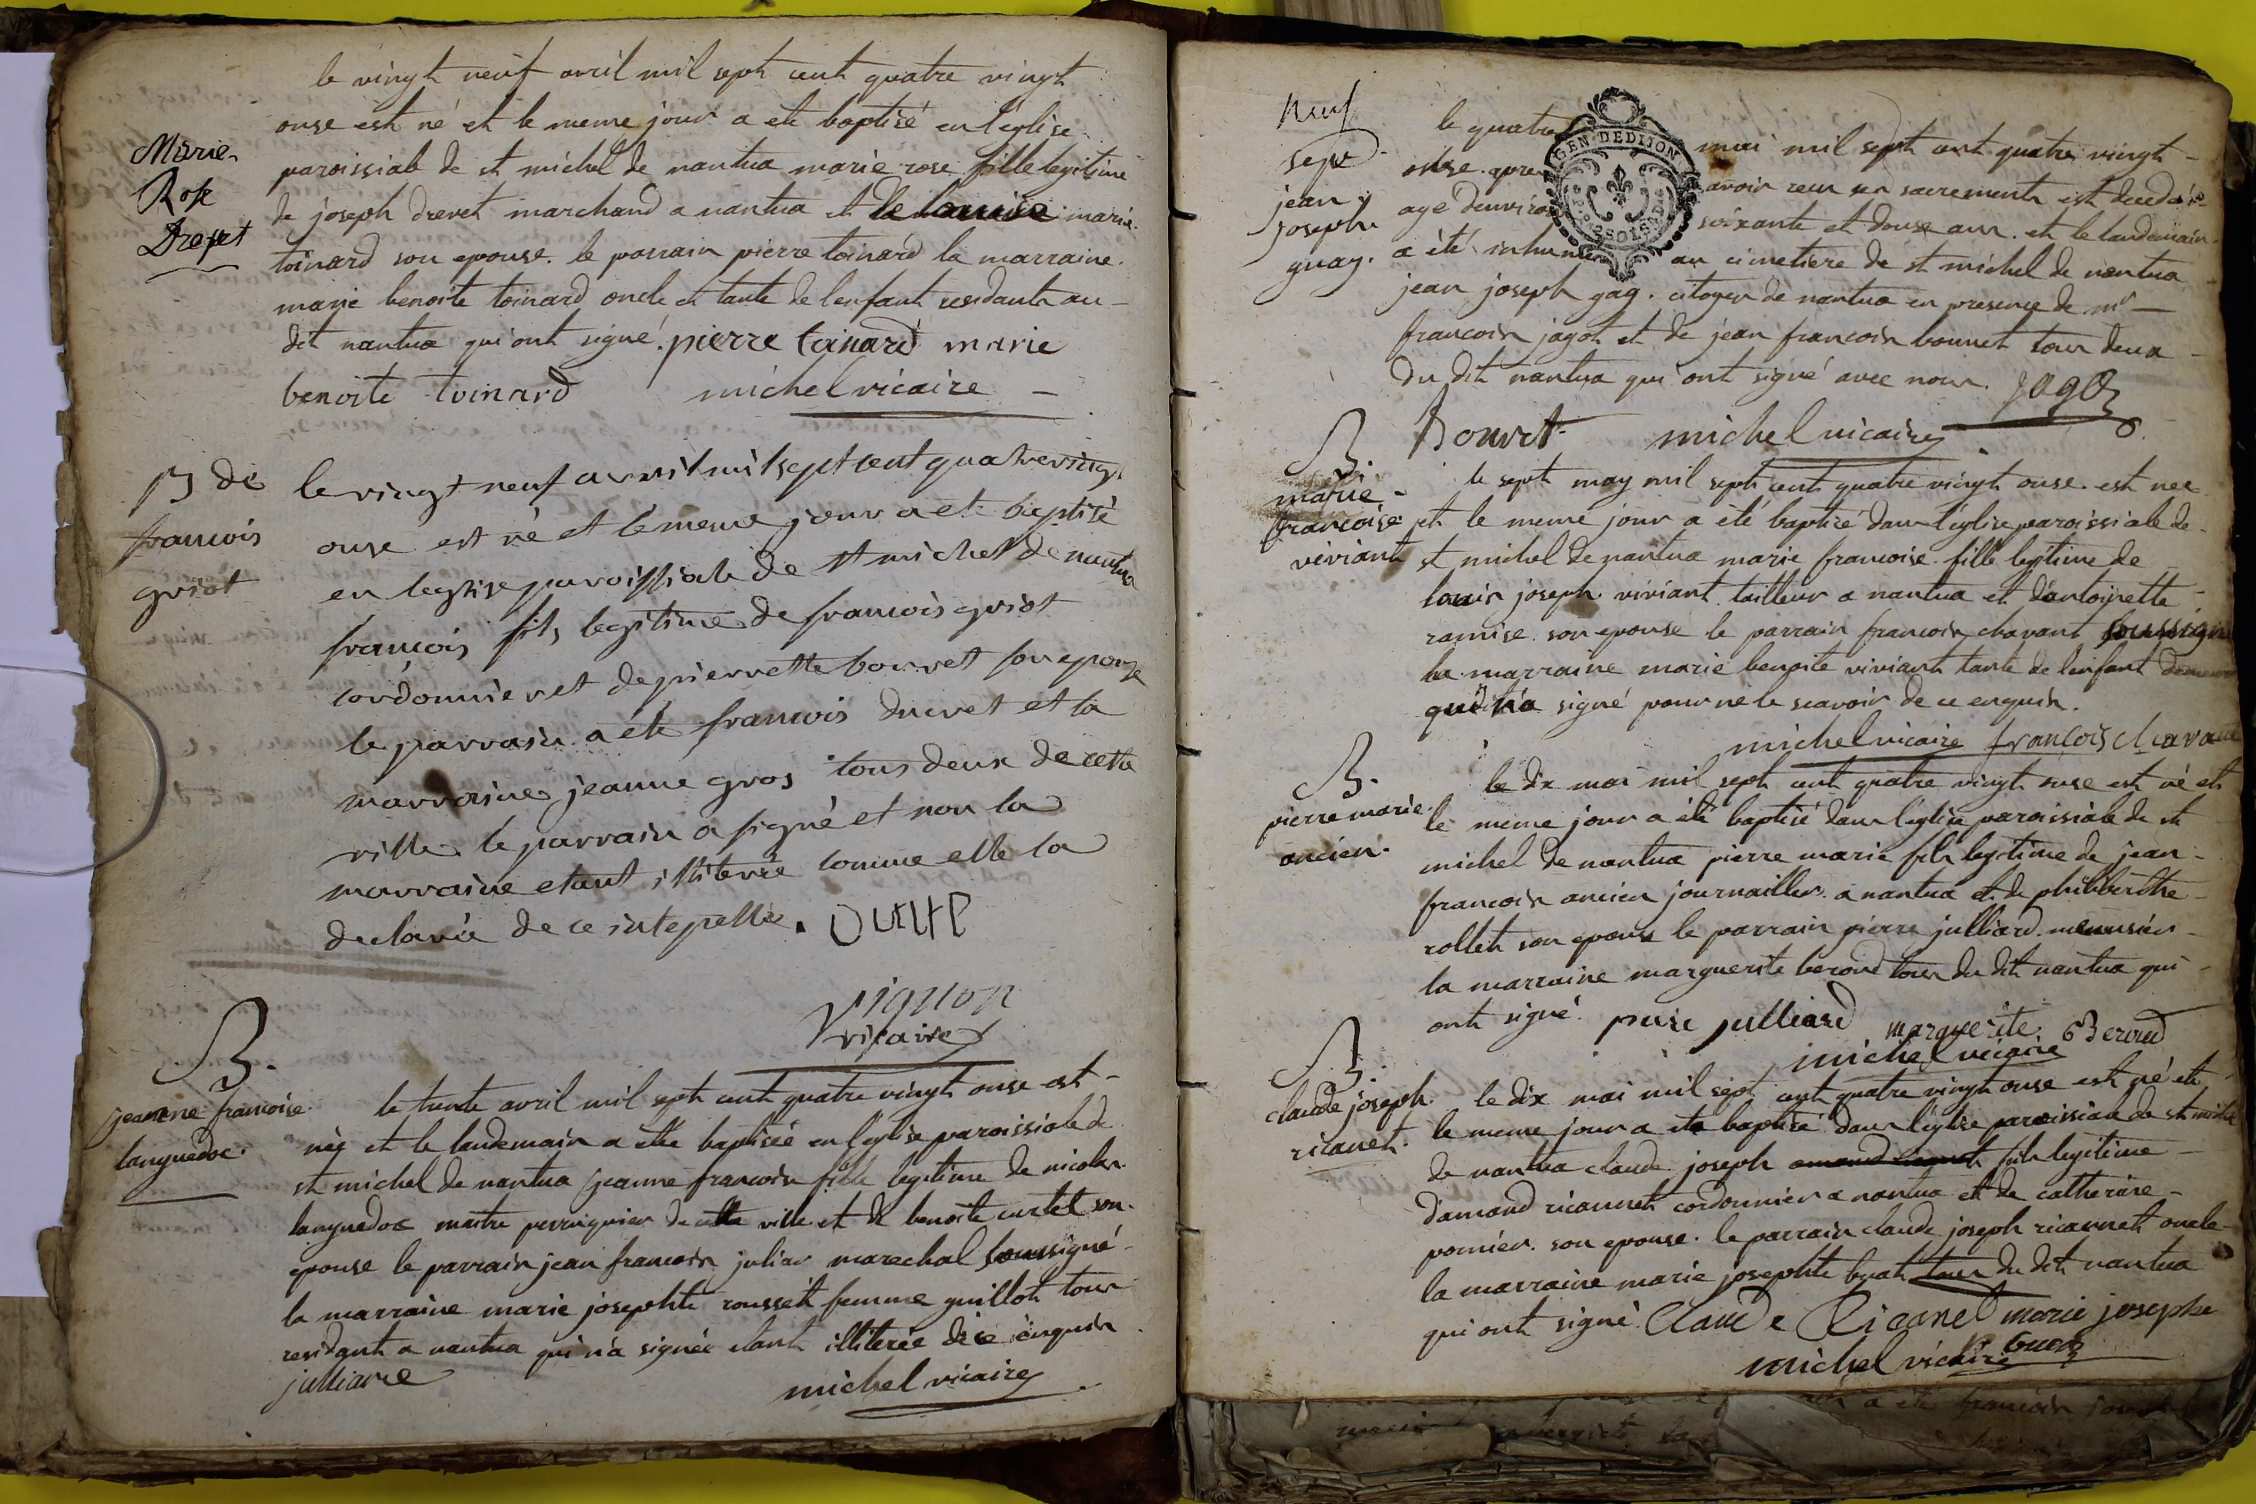 le vingt neuf avril mil sept cent quatre vingt
onse est né et le meme jour a ete baptisé en l'eglise
Marie
paroissiale de st michel de nantua marie rose fille legitime
Rose
de joseph drevet marchand a nantua et de marie
Drevet
toinard son epouse. le parrain pierre toinard la marraine
marie benoite toinard oncle et tante de lenfant residants au
dit nantua qui ont signé. pierre toinard marie
benoite toinard michel vicaire
B de
francois
griot
le vingt neuf avril mil sept cent quatre vingt
onse est né et le meme jour a ete baptisé
en leglise paroissiale de st michel de nantua
françois fils legitime de francois griot
cordonnier et de pierrette bouvet son epouse
le parrain a été francois ducret et la
marraine jeanne gros tous deux de cette
ville le parrain a signé et non la
marraine etant illiterée comme elle la
declaré de ce intepellée.
vignon
vicaire
B.
jeanne francoise
languedoc.
le trente avril mil sept cent quatre vingt onse est
née et le landemain a été baptisée en l'eglise paroissiale de
st michel de nantua jeanne francoise fille legitime de nicolas
languedoc maitre perruquier de cette ville et de benoite curtet son
epouse le parrain jean francois marechal soussigné
la marraine marie josephte roussét femme guillot tous
residants a nantua qui n'a signée etant illiterée de ce enquis
michel vicaire
neuf
sept
jean
joseph
guay.
GEN DE DIJON
le quatre mai mil sept cent quatre vingt
onse apres avoir recu ses sacrements est decedé
age denviron soixante et douse ans et le landemain
a été inhumer au cimetiere de st michel de nantua
jean joseph gag. citoyen de nantua en presence de mr
francois jagot et de jean francois bonnet tous deux
du dit nantua qui ont signé avec nous. jagot
michel vicaire
B.
marie
francoise
viviant
le sept may mil sept cent quatre vingt onse est nee
et le meme jour a été baptisé dans l'église paroissiale de
st michel de nantua marie francoise fille legitime de
louis joseph viviant tailleur a nantua et d'antoinette
ramise son epouse le parrain francois chavant soussigné
la marraine marie benoite viviant tante de lenfant
qui n'a signé pour ne le scavoir de ce enquis.
michel vicaire francois chavant
B.
pierre marie
ancien.
le dix mai mil sept cent quatre vingt onse est né et
le meme jour a été baptisé dans l'église paroissiale de st
michel de nantua pierre marie fils legitime de jean
francois ancien journaillier a nantua et de philiberthe
rollet son epouse le parrain pierre julliard menusier
la marraine marguerite beroud tous du dit nantua qui
ont signé. pierre julliard marguerite Beroud
michel vicaire
B.
claude joseph
ricanet.
le dix mai mil sept cent quatre vingt onse est né et
le meme jour a ete baptisé dans l'église paroissiale de st michel
de nantua claude joseph fils legitime
d'amand ricannet cordonnier a nantua et de catherine
pomier son epouse. le parrain claude joseph ricannet oncle
la marraine marie josephte tous du dit nantua
qui ont signé Claude Ricanet marie josephe
michel vicaire